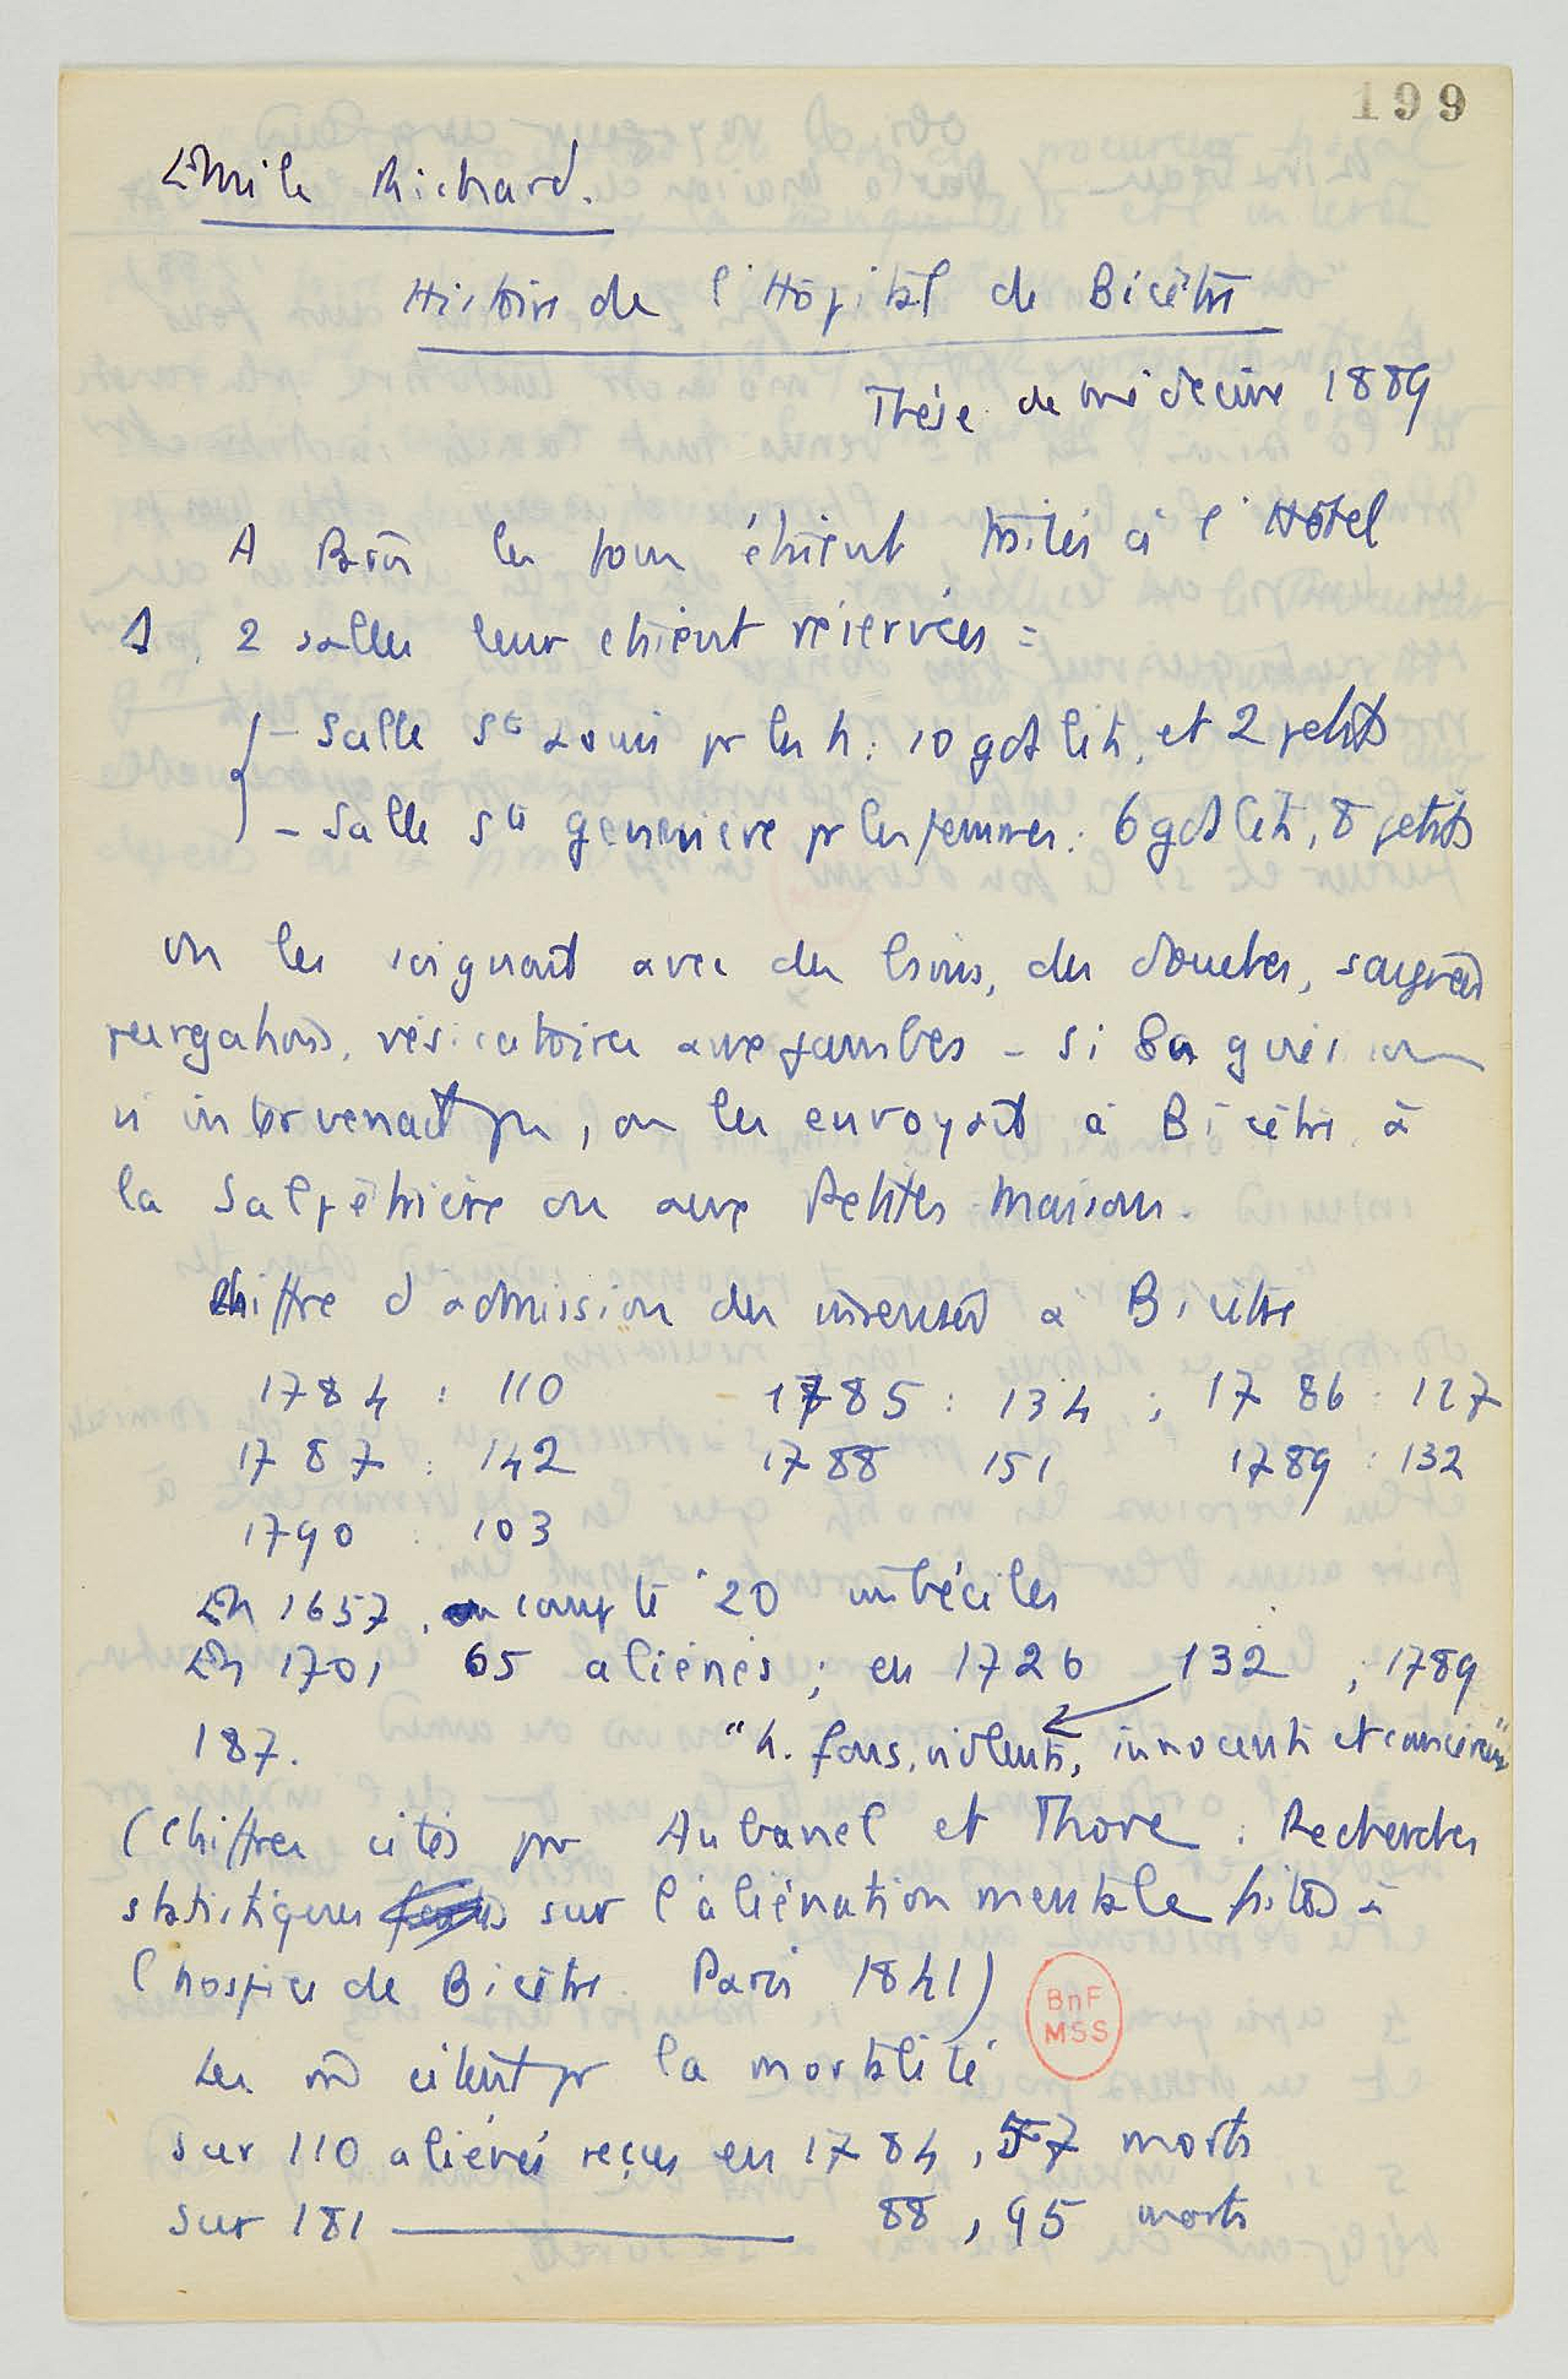 199
Emile Richard.
Histoire de l'Hôpital de Bicêtre
Thèse de médecine 1889
A Paris les fous étaient traités à l'Hôtel
D. 2 salles leur étaient réservées :
- Salle St Louis pr les h. : 10 gds lits, et 2 petits
- Salle Ste Geneviève pr les femmes : 6 gds lits, 8 petits
on les soignait avec des bains, des douches, saignées
purgations, vésicatoires aux jambes - si la guérison
n'intervenait pas, on les envoyait à Bicêtre, à
la Salpêtrière ou aux Petites Maisons.
Chiffre d'admission des insensés à Bicêtre
1784 : 110 1785 : 134 ; 1786 : 127
1787 : 142 1788 151 1789 : 132
1790 : 103
En 1657, on compte 20 imbéciles
En 1701 65 aliénés ; en 1726 132 ; 1789
187. "h. fous, violents, innocents et
(Chiffres cités par Aubanel et Thore : Recherches
statistiques sur l'aliénation mentale faites à
l'hospice de Bicêtre. Paris 1841)
Les citent pr la mortalité
sur 110 aliénés reçus en 1784, 57 morts
sur 181 ——— 88, 95 morts
BnF
MSS